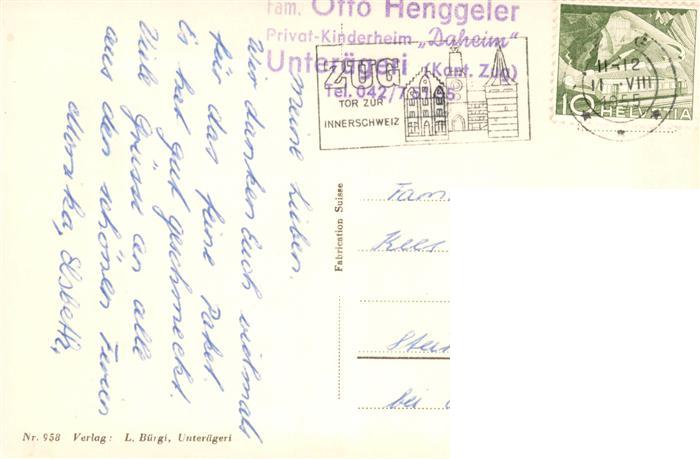 Fam. Otto Henggeler
Privat-Kinderheim „Daheim"
Unterägeri (Kant. Zug)
Tel. 042/7
ZUG
TOR ZUR
INNERSCHWEIZ
11-12
VIII
10 HELVETIA
meine Lieben.
Wir danken Euch vielmals
für das feine Paket.
Es hat gut geschmeckt.
Viele Grüsse an alle
aus den schönen Ferien
Monika, Lisbeth,
Fabrication Suisse
Fam.
Kees
bei
Nr. 958 Verlag: L. Bürgi, Unterägeri